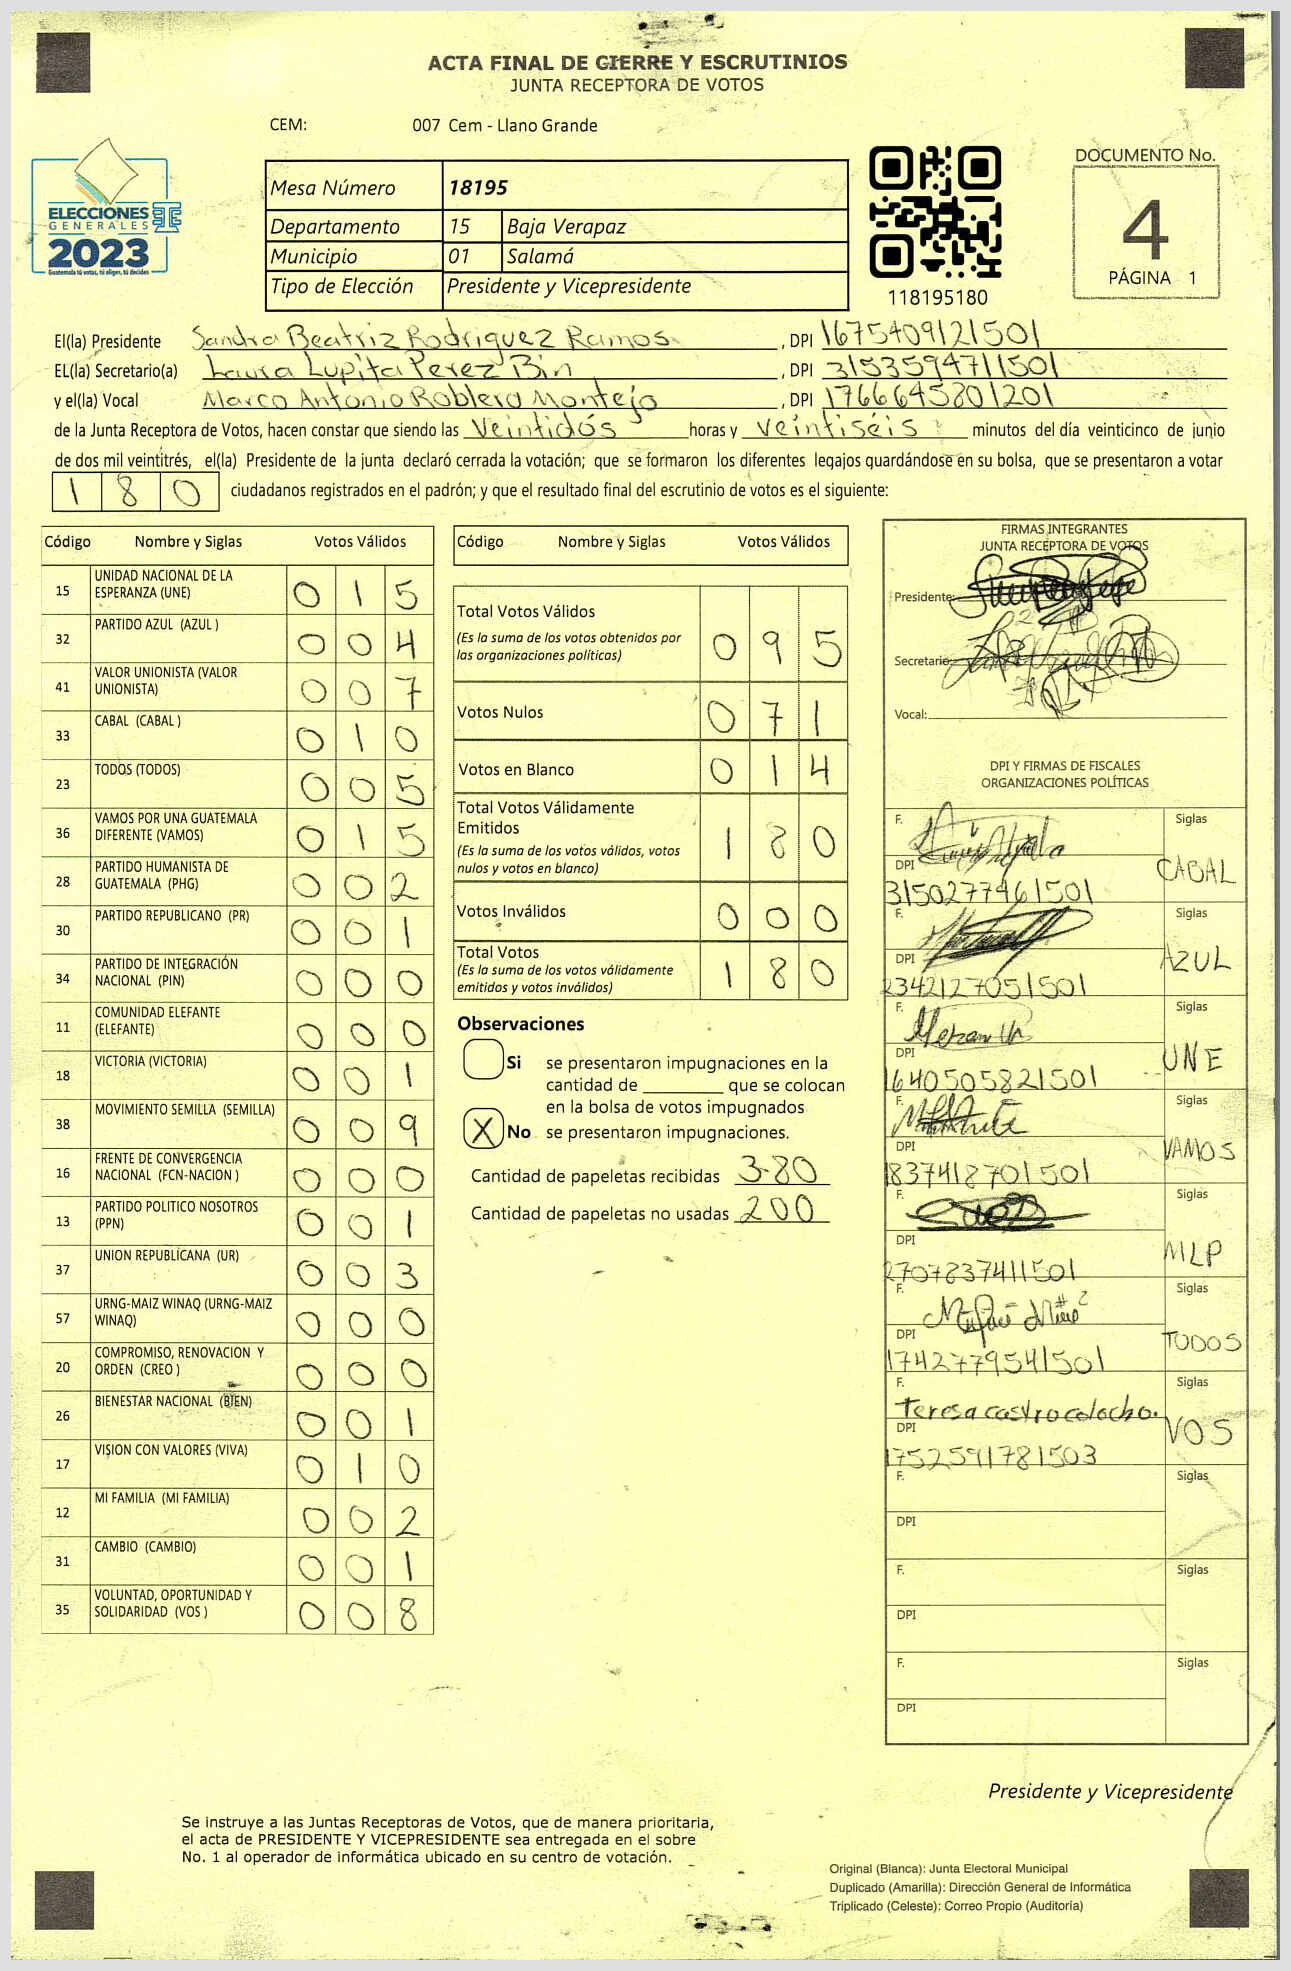 ACTA FINAL DE CIERRE Y ESCRUTINIOS
JUNTA RECEPTORA DE VOTOS
CEM: 007 Cem - Llano Grande
ELECCIONES
GENERALES
2023
Guatemala tú votas, tú eliges, tú decides
Mesa Número 18195
Departamento 15 Baja Verapaz
Municipio 01 Salamá
Tipo de Elección Presidente y Vicepresidente
118195180
DOCUMENTO No.
4
PÁGINA 1
El(la) Presidente Sandra Beatriz Rodriguez Ramos , DPI 1675409121501
EL(la) Secretario(a) Laura Lupita Perez Bin , DPI 3153594711501
y el(la) Vocal Marco Antonio Roblero Montejo , DPI 1766645801201
de la Junta Receptora de Votos, hacen constar que siendo las Veintidós horas y veintiséis minutos del día veinticinco de junio
de dos mil veintitrés, el(la) Presidente de la junta declaró cerrada la votación; que se formaron los diferentes legajos guardándose en su bolsa, que se presentaron a votar
180 ciudadanos registrados en el padrón; y que el resultado final del escrutinio de votos es el siguiente:
Código Nombre y Siglas Votos Válidos
15 UNIDAD NACIONAL DE LA ESPERANZA (UNE) 015
32 PARTIDO AZUL (AZUL ) 004
41 VALOR UNIONISTA (VALOR UNIONISTA) 007
33 CABAL (CABAL ) 010
23 TODOS (TODOS) 005
36 VAMOS POR UNA GUATEMALA DIFERENTE (VAMOS) 015
28 PARTIDO HUMANISTA DE GUATEMALA (PHG) 002
30 PARTIDO REPUBLICANO (PR) 001
34 PARTIDO DE INTEGRACIÓN NACIONAL (PIN) 000
11 COMUNIDAD ELEFANTE (ELEFANTE) 000
18 VICTORIA (VICTORIA) 001
38 MOVIMIENTO SEMILLA (SEMILLA) 009
16 FRENTE DE CONVERGENCIA NACIONAL (FCN-NACION ) 000
13 PARTIDO POLITICO NOSOTROS (PPN) 001
37 UNION REPUBLICANA (UR) 003
57 URNG-MAIZ WINAQ (URNG-MAIZ WINAQ) 000
20 COMPROMISO, RENOVACION Y ORDEN (CREO ) 000
26 BIENESTAR NACIONAL (BIEN) 001
17 VISION CON VALORES (VIVA) 010
12 MI FAMILIA (MI FAMILIA) 002
31 CAMBIO (CAMBIO) 001
35 VOLUNTAD, OPORTUNIDAD Y SOLIDARIDAD (VOS ) 008
Código Nombre y Siglas Votos Válidos
Total Votos Válidos 095
(Es la suma de los votos obtenidos por
las organizaciones políticas)
Votos Nulos 071
Votos en Blanco 014
Total Votos Válidamente
Emitidos 180
(Es la suma de los votos válidos, votos
nulos y votos en blanco)
Votos Inválidos 000
Total Votos 180
(Es la suma de los votos válidamente
emitidos y votos inválidos)
Observaciones
Si se presentaron impugnaciones en la
cantidad de ________ que se colocan
en la bolsa de votos impugnados
X No se presentaron impugnaciones.
Cantidad de papeletas recibidas 380
Cantidad de papeletas no usadas 200
FIRMAS INTEGRANTES
JUNTA RECEPTORA DE VOTOS
Presidente:
Secretario:
Vocal:
DPI Y FIRMAS DE FISCALES
ORGANIZACIONES POLÍTICAS
F. Siglas CABAL
DPI 3150277461501
F. Siglas AZUL
DPI 2342127051501
F. Siglas UNE
DPI 1640505821501
F. Siglas VAMOS
DPI 1837418701501
F. Siglas MLP
DPI 2707837411501
F. Siglas TODOS
DPI 1742779541501
F. Teresa castro colocho. Siglas VOS
DPI 1752591781503
F. Siglas
DPI
F. Siglas
DPI
F. Siglas
DPI
Presidente y Vicepresidente
Se instruye a las Juntas Receptoras de Votos, que de manera prioritaria,
el acta de PRESIDENTE Y VICEPRESIDENTE sea entregada en el sobre
No. 1 al operador de informática ubicado en su centro de votación.
Original (Blanca): Junta Electoral Municipal
Duplicado (Amarilla): Dirección General de Informática
Triplicado (Celeste): Correo Propio (Auditoría)